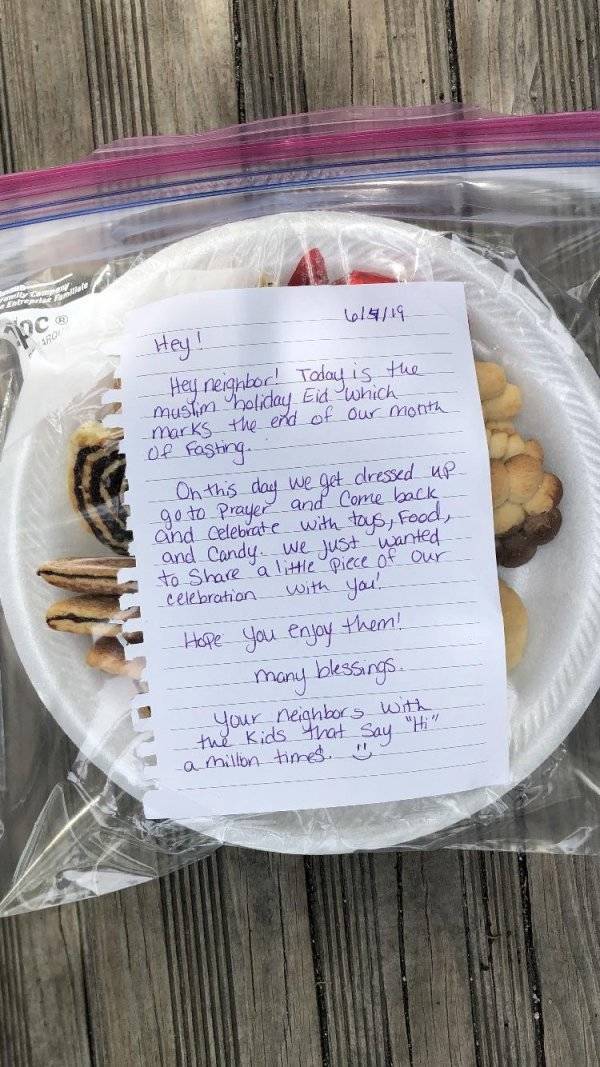 Family Company
Entreprise Familiale
6/4/19
Hey!
Hey neighbor! Today is the
muslim holiday Eid which
marks the end of our month
of Fasting.
On this day we get dressed up
go to Prayer and Come back
and celebrate with toys, Food,
and Candy. we just wanted
to Share a little Piece of Our
celebration with you!
Hope you enjoy them!
many blessings.
your neighbors with
the kids that say "Hi"
a million times. :)